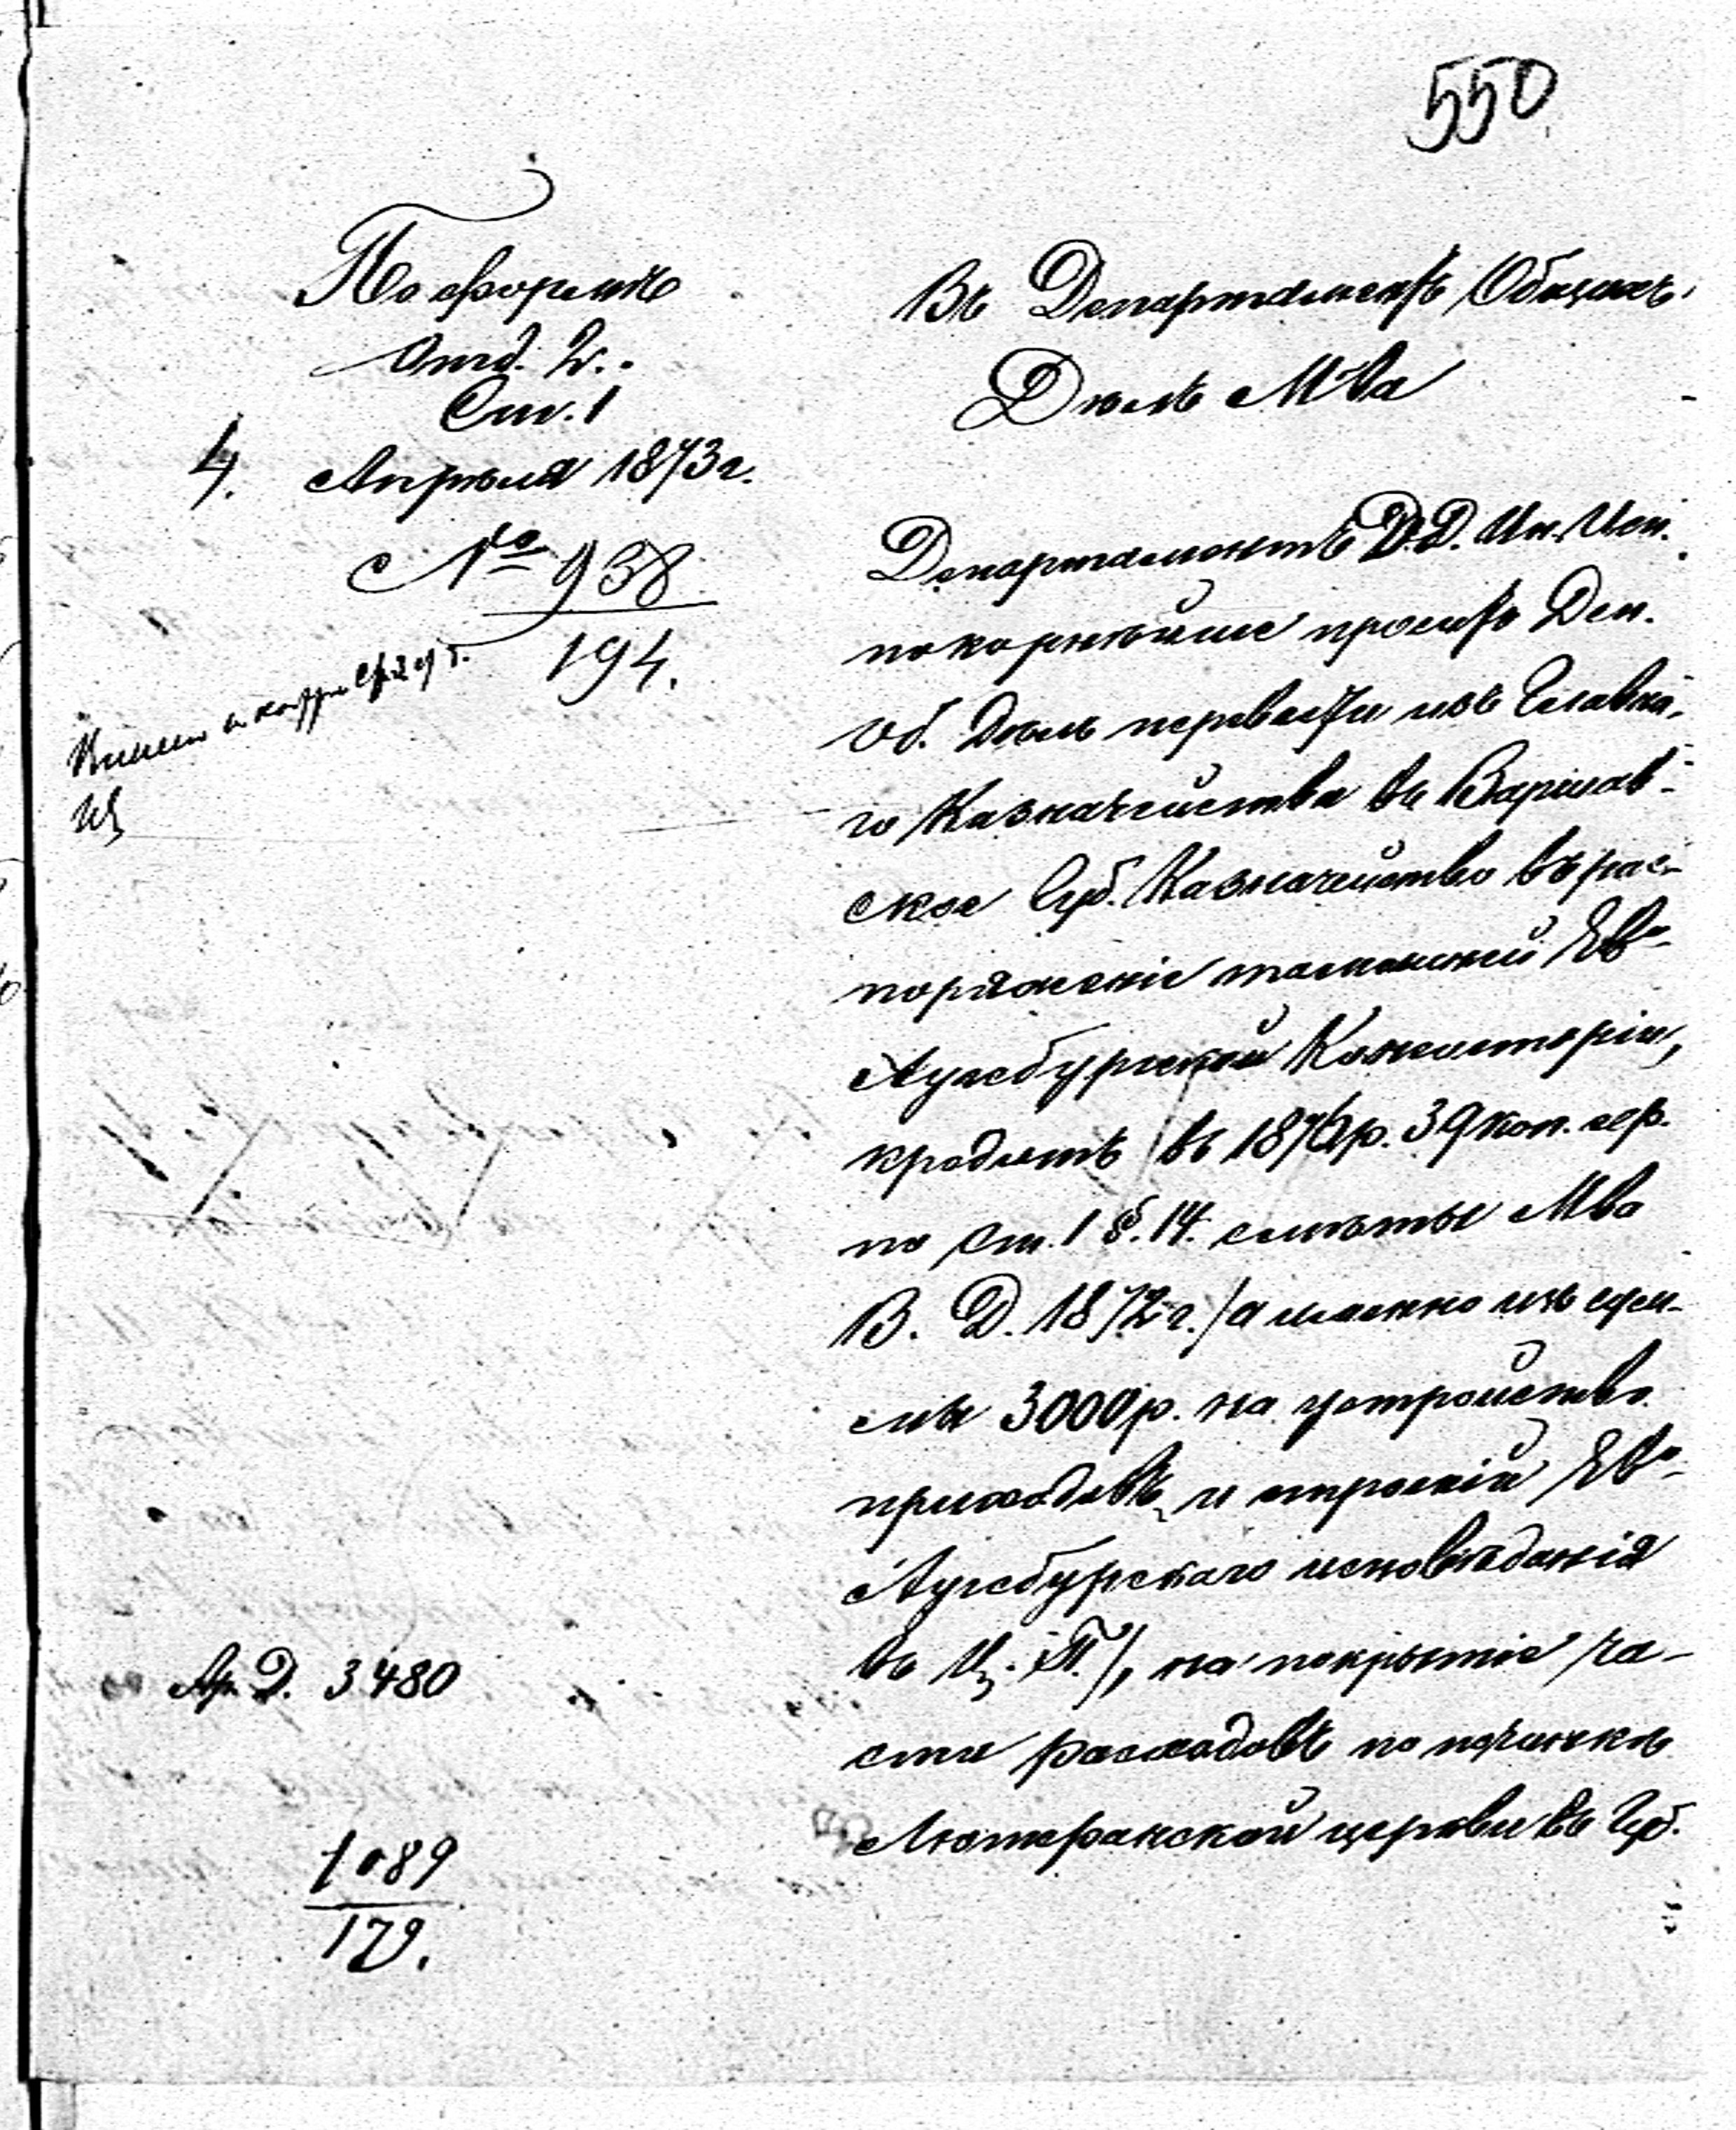 550
По формѣ
Отд. 2.
Ст. 1
4. Апрѣля 1873 г.
№ 938
194.
Въ Департаментъ Общихъ
Дѣлъ М-ва
Департаментъ Д. Д. Ин. Исп.
покорнѣйше проситъ Деп.
Об. Дѣлъ перевести изъ Главна-
го Казначейства въ Варшав-
ское Губ. Казначейство въ рас-
поряженіе тамошней Ев-
Аугсбургской Консисторіи,
кредитъ въ 187 р. 39 коп. сер.
по ст. 1 §. 14. смѣты М-ва
В. Д. 1872 г. /а именно изъ сум-
мы 3000 р. на устройство
приходовъ и строеній Ев-
Аугсбургскаго исповѣданія
въ Ц. П./, на покрытіе ча-
сти расходовъ по починкѣ
Лютеранской церкви въ Губ.
Ар. Д. 3480
1089
179.